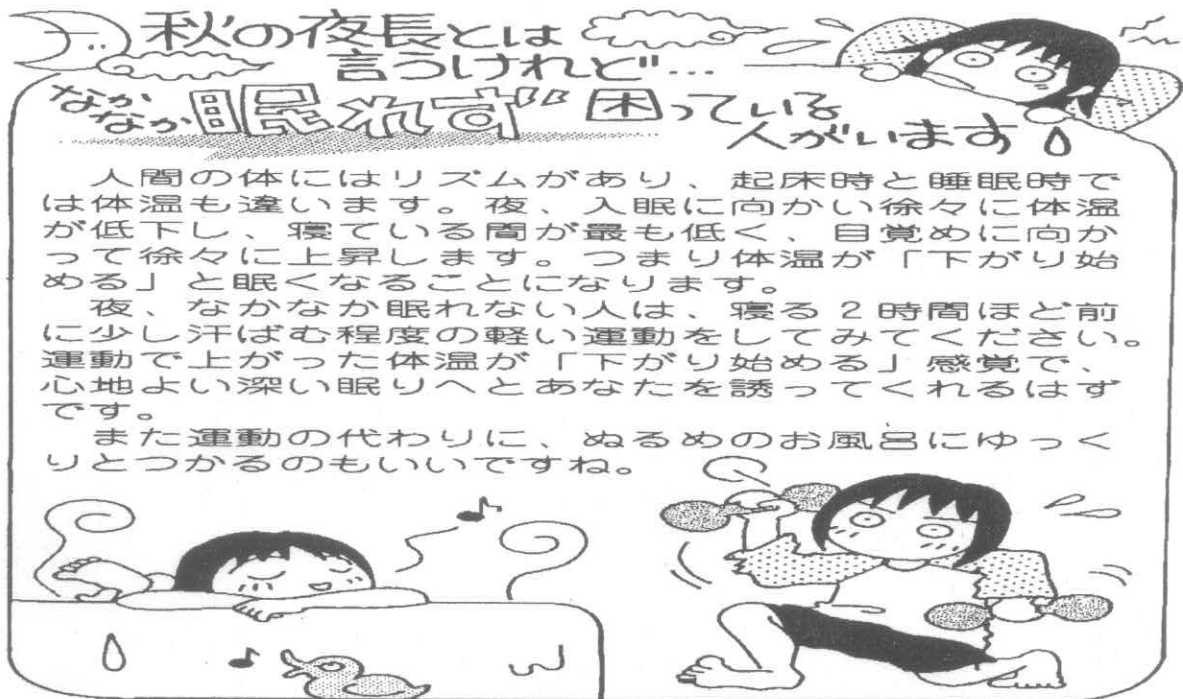 秋の夜長とは
言うけれど…
なかなか眠れず困っている
人がいます
人間の体にはリズムがあり、起床時と睡眠時で
は体温も違います。夜、入眠に向かい徐々に体温
が低下し、寝ている間が最も低く、目覚めに向か
って徐々に上昇します。つまり体温が「下がり始
める」と眠くなることになります。
夜、なかなか眠れない人は、寝る2時間ほど前
に少し汗ばむ程度の軽い運動をしてみてください。
運動で上がった体温が「下がり始める」感覚で、
心地よい深い眠りへとあなたを誘ってくれるはず
です。
また運動の代わりに、ぬるめのお風呂にゆっく
りとつかるのもいいですね。